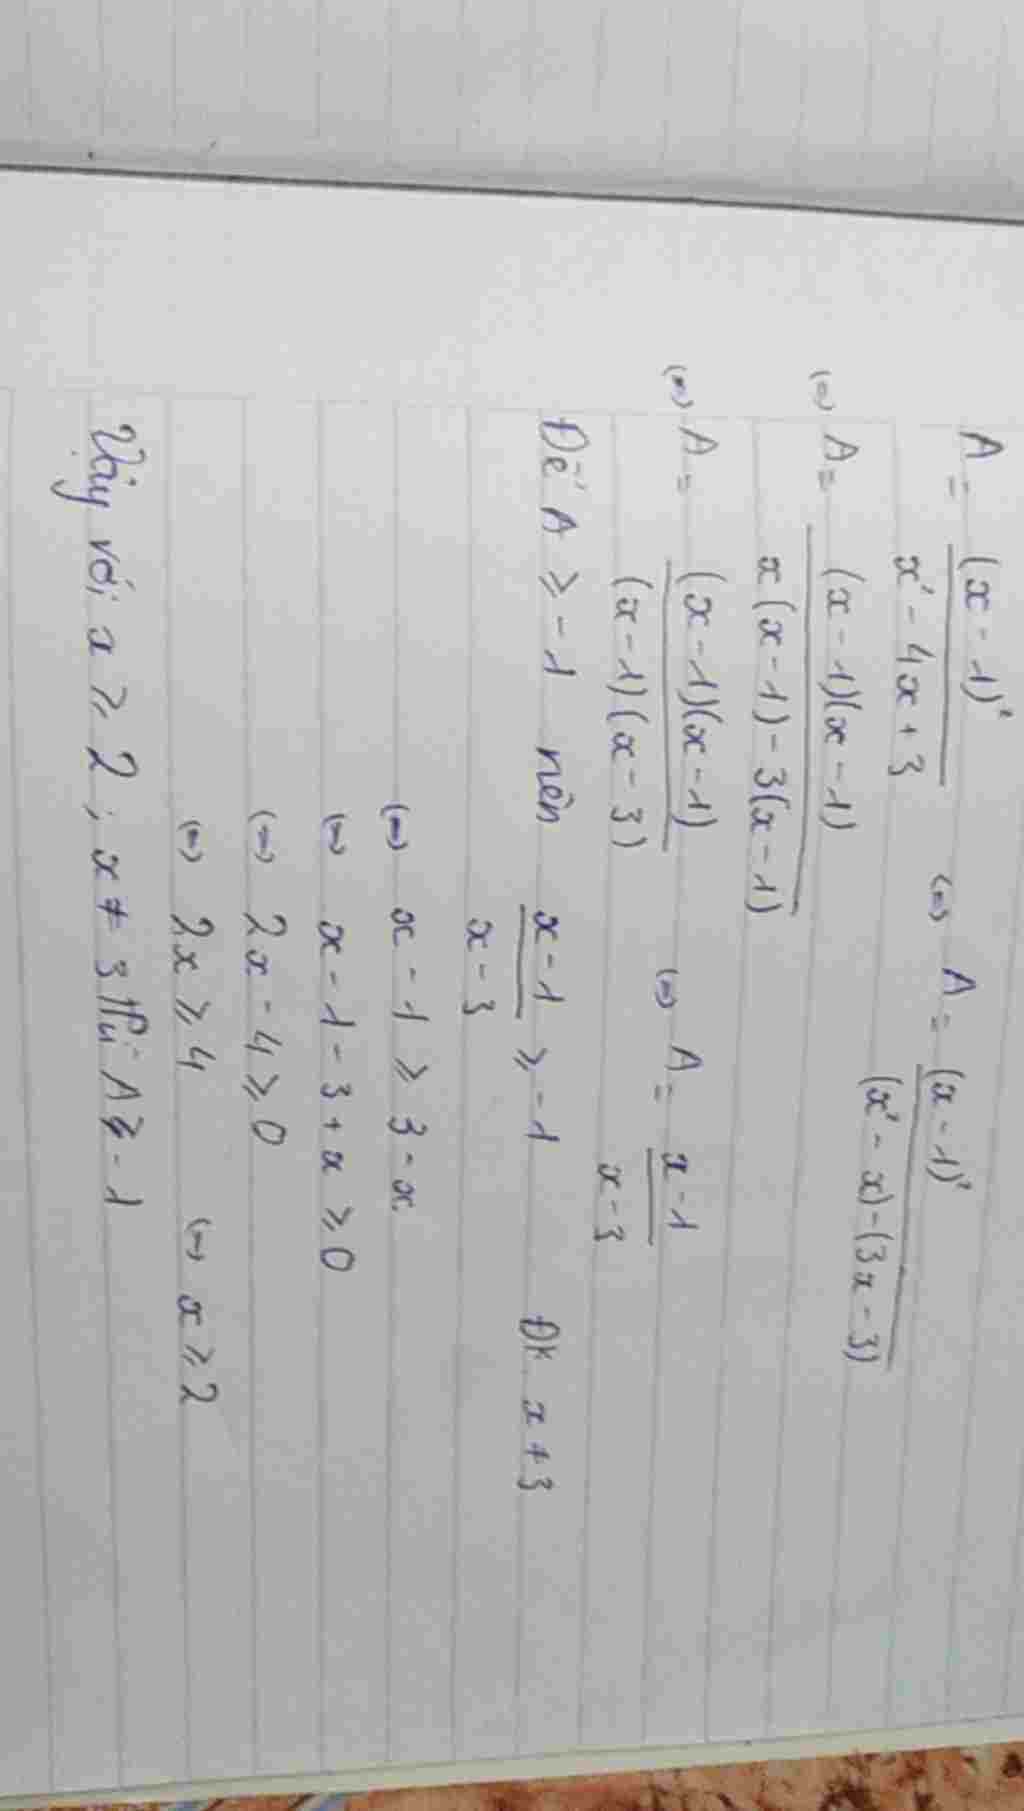 A = (x - 1)² / x² - 4x + 3 (=) A = (x - 1)² / (x² - x) - (3x - 3)
(=) A = (x - 1)(x - 1) / x(x - 1) - 3(x - 1)
(=) A = (x - 1)(x - 1) / (x - 1)(x - 3) (=) A = x - 1 / x - 3
Để A ≥ -1 nên x - 1 / x - 3 ≥ -1 ĐK x ≠ 3
(=) x - 1 ≥ 3 - x
(=) x - 1 - 3 + x ≥ 0
(=) 2x - 4 ≥ 0
(=) 2x ≥ 4 (=) x ≥ 2
Vậy với x ≥ 2 ; x ≠ 3 thì A ≥ -1